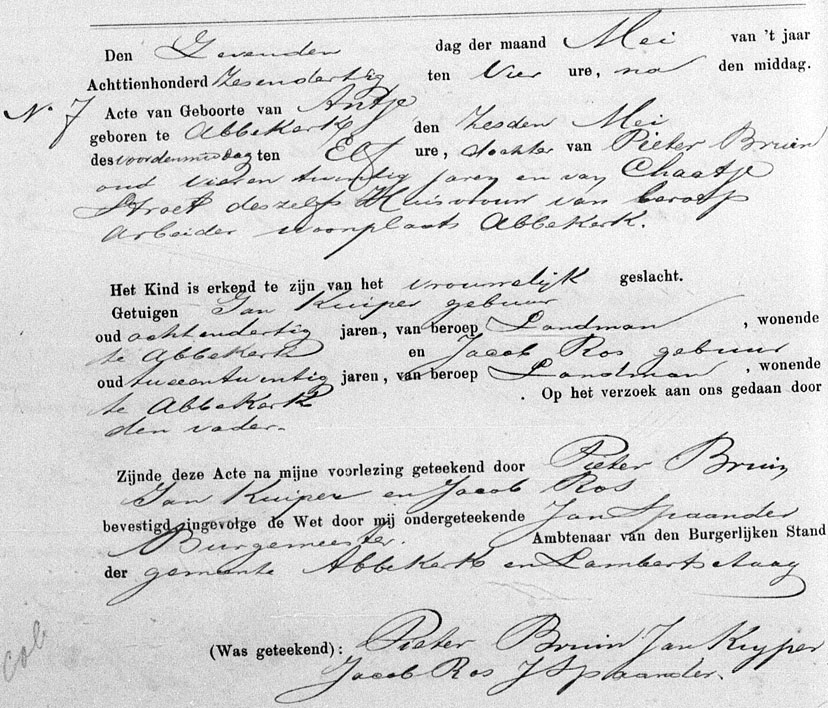 Den Zevenden dag der maand Mei van 't jaar
Achttienhonderd Zesendertig ten Vier ure, na den middag.
No. 7 Acte van Geboorte van Antje
geboren te Abbekerk den Zesden Mei
des voordenmiddag ten Elf ure, dochter van Pieter Bruin
oud vieren twendig jaren en van
Stroet deszelfs Huisvrouw van beroep
Arbeider woonplaats Abbekerk.
Het Kind is erkend te zijn van het vrouwelijk geslacht.
Getuigen Jan Kuiper gebuur
oud achtendertig jaren, van beroep Landman, wonende
te Abbekerk en Jacob Ros gebuur
oud tweeentwentig jaren, van beroep Landman, wonende
te Abbekerk. Op het verzoek aan ons gedaan door
den vader.
Zijnde deze Acte na mijne voorlezing geteekend door Pieter Bruin
Jan Kuiper en Jacob Ros
bevestigd ingevolge de Wet door mij ondergeteekende Jan Spaander
Burgemeester. Ambtenaar van den Burgerlijken Stand
der gemeente Abbekerk en Lambertschaag
(Was geteekend): Pieter Bruin Jan Kuyper
Jacob Ros J Spaander.